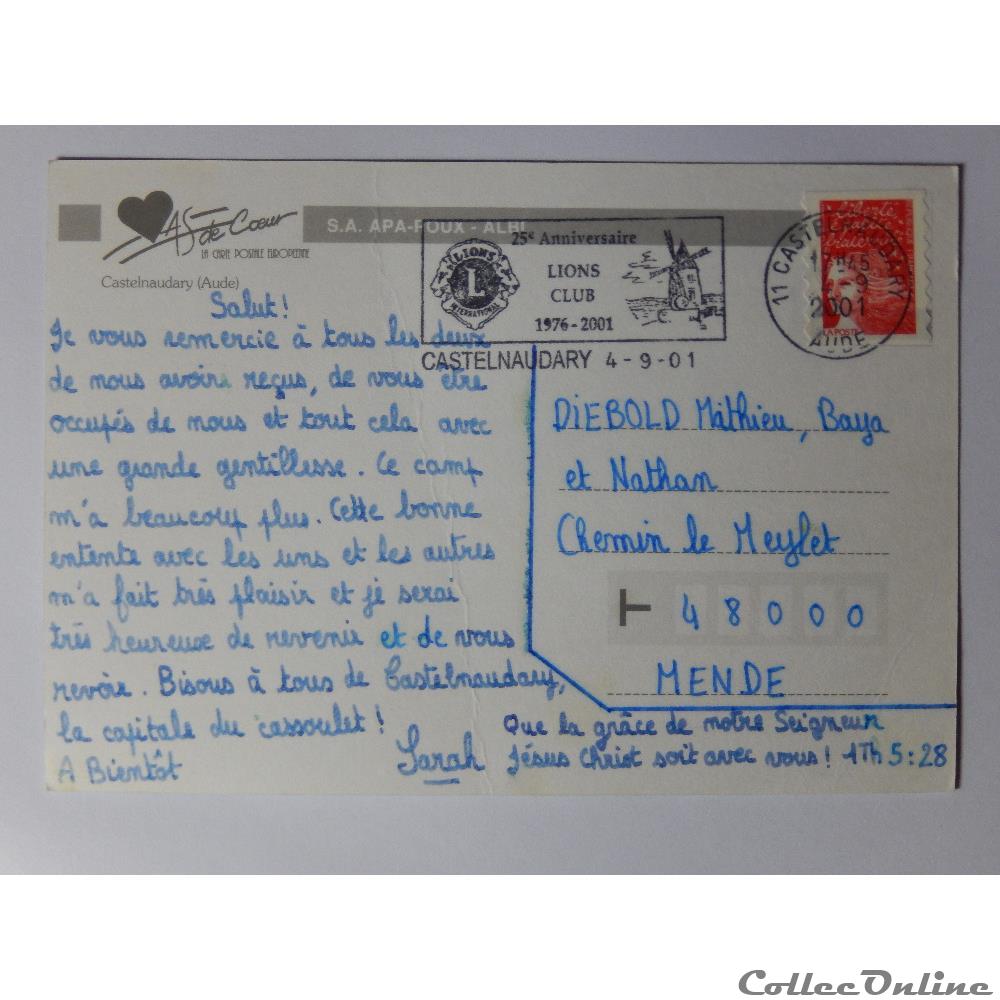 AS de Coeur
LA CARTE POSTALE EUROPEENNE
S.A. APA-POUX - ALBI
Castelnaudary (Aude)
25e Anniversaire
LIONS
CLUB
1976 - 2001
LIONS
L
INTERNATIONAL
CASTELNAUDARY 4 - 9 - 01
11 CASTELNAUDARY
45
9
2001
AUDE
Liberté
LA POSTE
Salut !
Je vous remercie à tous les deux
de nous avoir reçus, de vous être
occupés de nous et tout cela avec
une grande gentillesse. Ce camp
m'a beaucoup plus. Cette bonne
entente avec les uns et les autres
m'a fait très plaisir et je serai
très heureuse de revenir et de vous
revoir. Bisous à tous de Castelnaudary,
la capitale du cassoulet !
A Bientôt
Sarah
DIEBOLD Mathieu, Baya
et Nathan
Chemin le Meylet
48000
MENDE
Que la grâce de notre Seigneur
Jésus Christ soit avec vous ! 1Th 5:28
CollecOnline